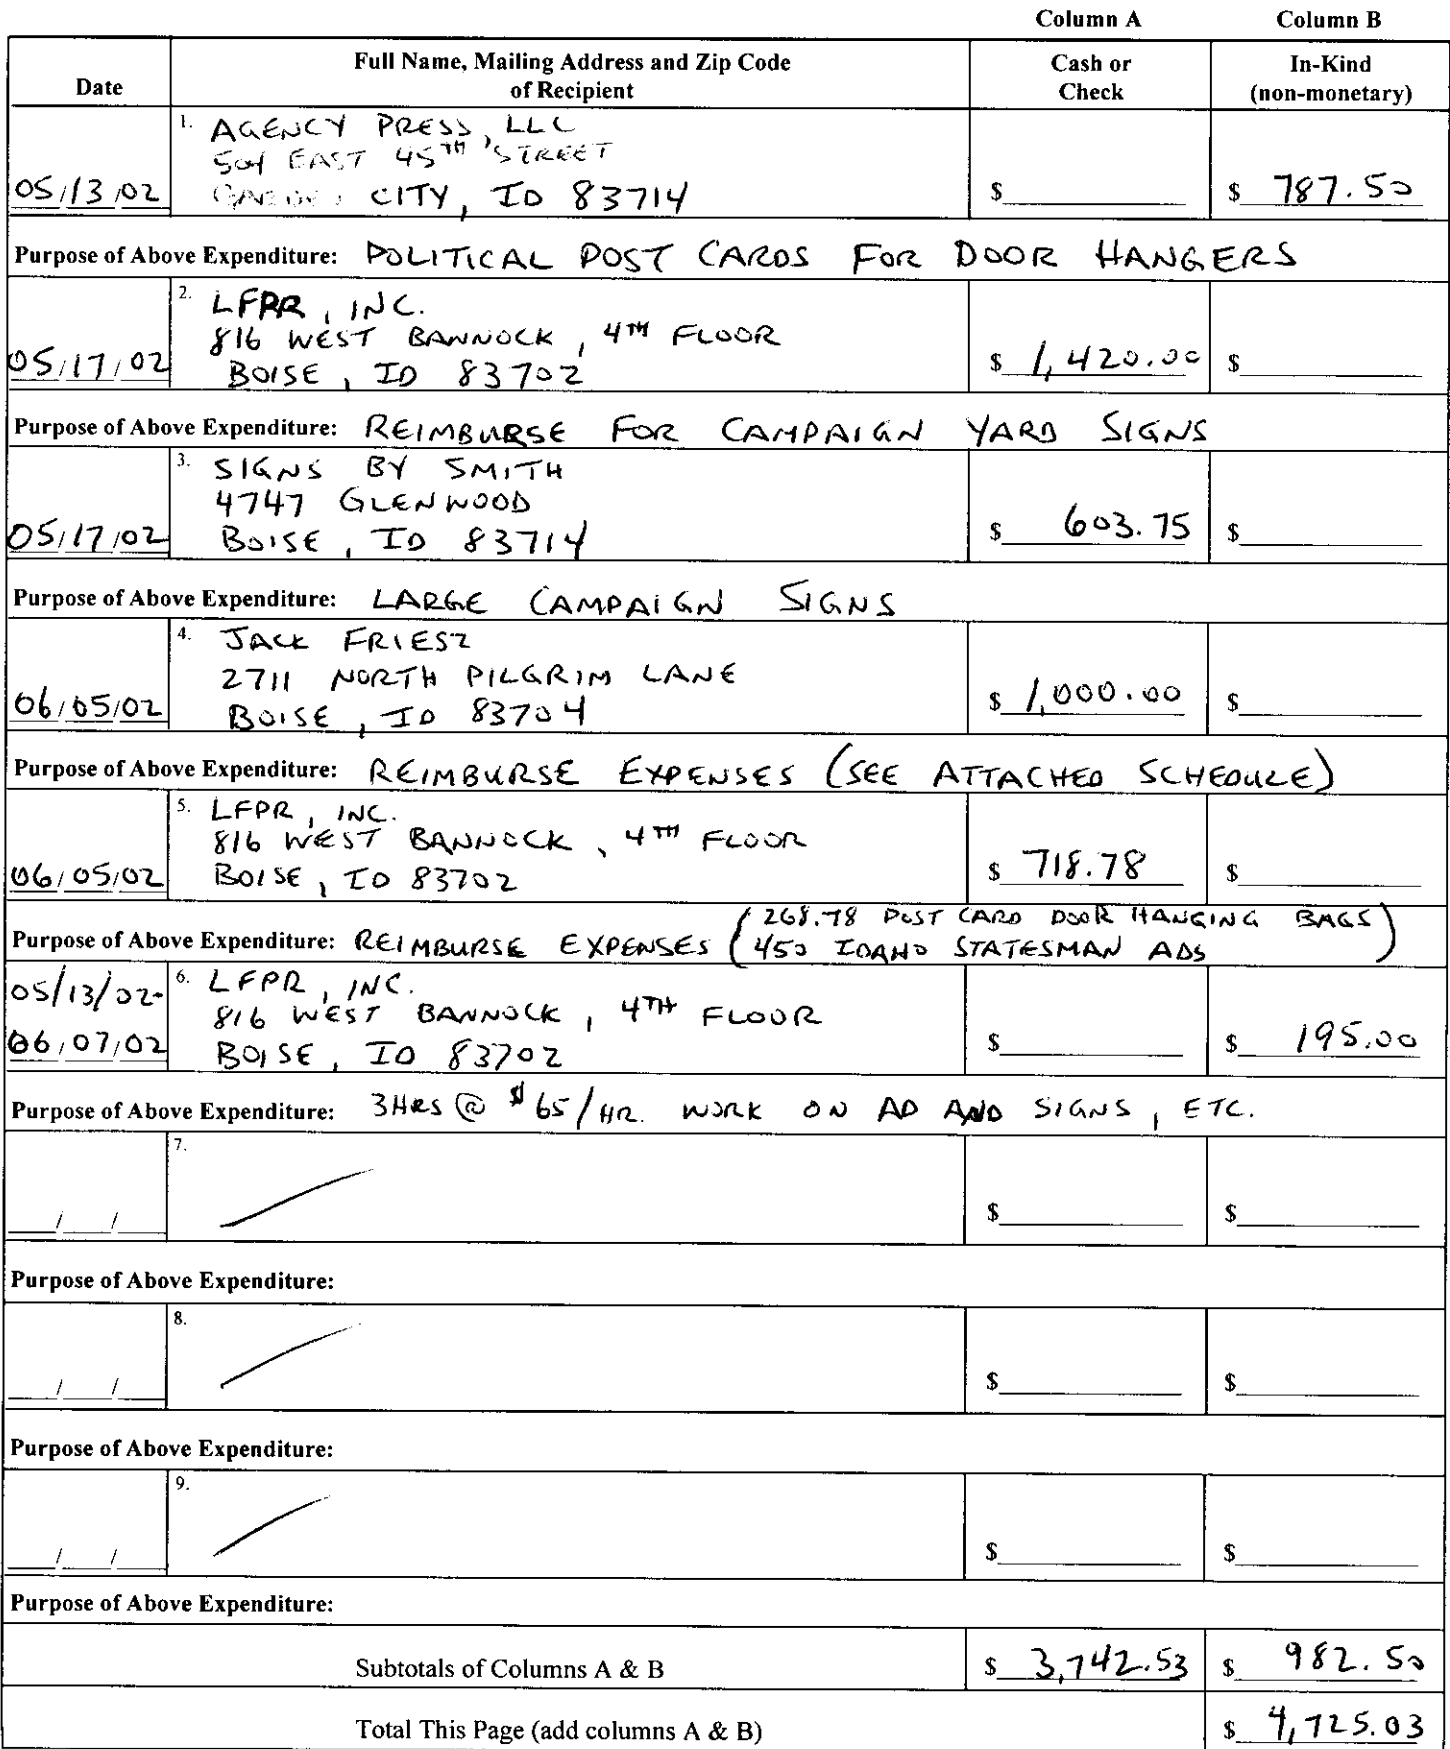 Column A Column B
Date Full Name, Mailing Address and Zip Code of Recipient Cash or Check In-Kind (non-monetary)
1. AGENCY PRESS, LLC
504 EAST 45TH STREET
05/13/02 CITY, ID 83714 $ $ 787.50
Purpose of Above Expenditure: POLITICAL POST CARDS FOR DOOR HANGERS
2. LFPR, INC.
816 WEST BANNOCK, 4TH FLOOR
05/17/02 BOISE, ID 83702 $ 1,420.00 $
Purpose of Above Expenditure: REIMBURSE FOR CAMPAIGN YARD SIGNS
3. SIGNS BY SMITH
4747 GLENWOOD
05/17/02 BOISE, ID 83714 $ 603.75 $
Purpose of Above Expenditure: LARGE CAMPAIGN SIGNS
4. JACK FRIESZ
2711 NORTH PILGRIM LANE
06/05/02 BOISE, ID 83704 $ 1,000.00 $
Purpose of Above Expenditure: REIMBURSE EXPENSES (SEE ATTACHED SCHEDULE)
5. LFPR, INC.
816 WEST BANNOCK, 4TH FLOOR
06/05/02 BOISE, ID 83702 $ 718.78 $
Purpose of Above Expenditure: REIMBURSE EXPENSES (268.78 POST CARD DOOR HANGING BAGS
450 IDAHO STATESMAN ADS)
05/13/02- 6. LFPR, INC.
816 WEST BANNOCK, 4TH FLOOR
06/07/02 BOISE, ID 83702 $ $ 195.00
Purpose of Above Expenditure: 3 HRS @ $65/HR. WORK ON AD AND SIGNS, ETC.
7.
/ / $ $
Purpose of Above Expenditure:
8.
/ / $ $
Purpose of Above Expenditure:
9.
/ / $ $
Purpose of Above Expenditure:
Subtotals of Columns A & B $ 3,742.53 $ 982.50
Total This Page (add columns A & B) $ 4,725.03